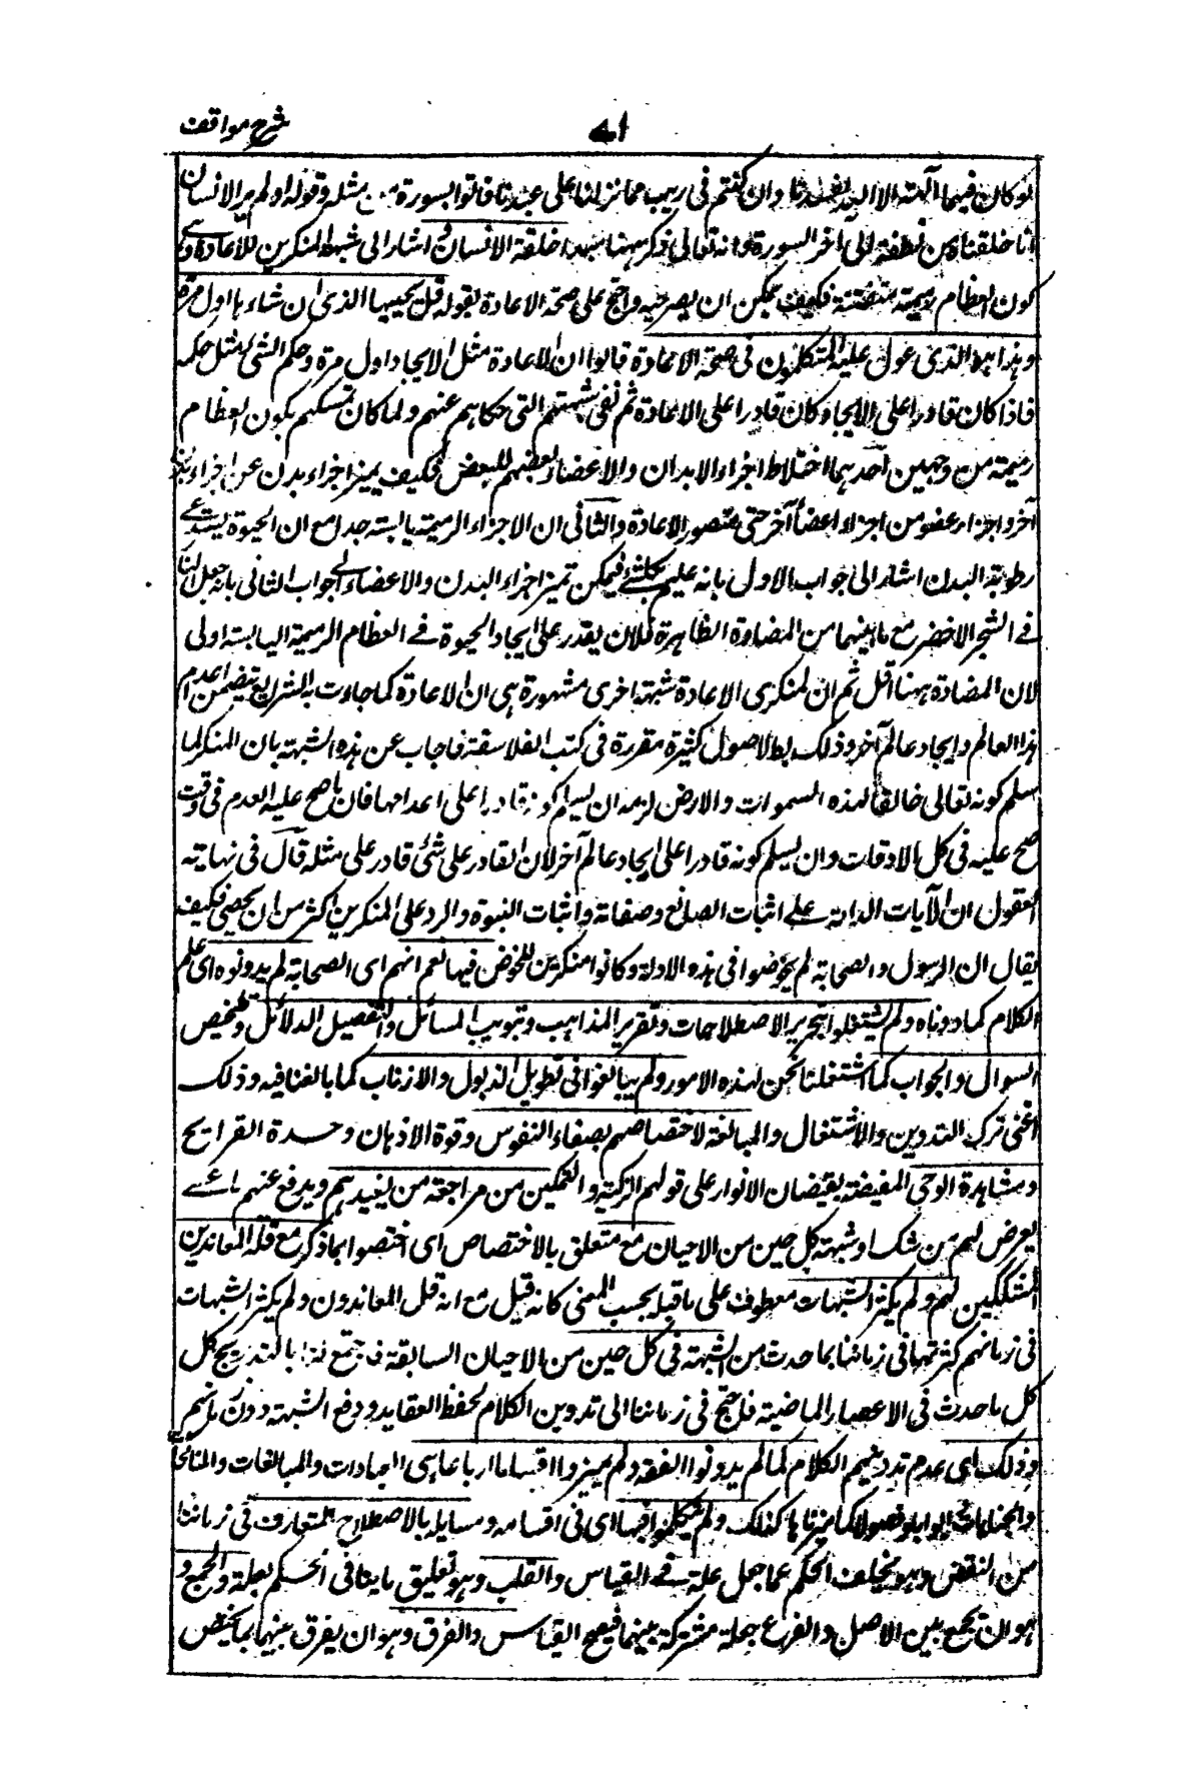 شرح مواقف
٧١
لو كان فيهما آلهة الا الله لفسدتا وان كنتم فى ريب مما نزلنا على عبدنا فاتوا بسورة من مثله وقوله اولم ير الانسان
انا خلقناه من نطفة الى آخر السورة فانه تعالى ذكر ههنا مبدأ خلقة الانسان ثم اشار الى شبهة المنكرين للاعادة وهى
كون العظام رميمة متفتتة فكيف يمكن ان يصير حيه واحتج على صحة الاعادة بقوله قل يحييها الذى انشاءها اول مرة
وهذا هو الذى عول عليه المتكلمون فى صحة الاعادة قالوا ان الاعادة مثل الايجاد اول مرة وحكم الشى حكم مثله
فاذا كان قادرا على الايجاد كان قادرا على الاعادة ثم نفى شبهتهم التى حكاهم عنهم ولما كان تمسكهم بكون العظام
رميمة من وجهين احدهما اختلاط اجزاء الابدان والاعضاء بعضهم للبعض فكيف يميز اجزاء بدن عن اجزاء بدن
آخر واجزاء عضو من اجزاء اعضاء آخر حتى يتصور الاعادة والثانى ان الاجزاء الرميمة يابسته جدا مع ان الحيوة يستدعى
رطوبة البدن اشار الى جواب الاول بانه عليم بكل شئ فيمكن تميز اجزاء البدن والاعضاء والى جواب الثانى بانه جعل النار
فى الشجر الاخضر مع ما بينهما من المضادة الظاهرة فلان يقدر على ايجاد الحيوة فى العظام الرميمة اليابسته اولى
لان المضادة ههنا اقل ثم ان لمنكرى الاعادة شبهة اخرى مشهورة هى ان الاعادة كما جاءت به الشرايع يتضمن اعدام
هذا العالم وايجاد عالم آخر وذلك بط لاصول كثيرة مقررة فى كتب الفلاسفة فاجاب عن هذه الشبهة بان المنكر لما
سلم كونه تعالى خالقا لهذه السموات والارض لزمه ان يسلم كونه قادرا على اعدامها فان ما صح عليه العدم فى وقت
صح عليه فى كل الاوقات وان يسلم كونه قادرا على ايجاد عالم آخر لان القادر على شئ قادر على مثله قال فى نهاية
العقول ان الآيات الدالة على اثبات الصانع وصفاته واثبات النبوة والرد على المنكرين اكثر من ان يحصى فكيف
يقال ان الرسول والصحابة لم يخوضوا فى هذه الادلة وكانوا منكرين للخوض فيها نعم انهم اى الصحابة لم يدونوه اى علم
الكلام كما دوناه ولم يشتغلوا بتحرير الاصطلاحات وتقرير المذاهب وتبويب المسائل وتفصيل الدلائل وتلخيص
السوال والجواب كما اشتغلنا نحن لهذه الامور ولم يبالغوا فى تطويل الذيول والاذناب كما بالغنا فيه وذلك
اعنى ترك التدوين والاشتغال والمبالغة لاختصاصهم بصفاء النفوس وقوة الاذهان وحدة القرايح
ومشاهدة الوحى المفيضة بفيضان الانوار على قولهم الزكية والتمكين من مراجعة من يفيدهم ويدفع عنهم ما عسى
يعرض لهم من شك او شبهة كل حين من الاحيان مع متعلق بالاختصاص اى اختصوا بما ذكر مع قلة المعاندين
المشككين لهم ولم يكثر الشبهات معطوف على ما قبله بحسب المعنى كانه قيل مع انه قل المعاندون ولم يكثر الشبهات
فى زمانهم كثرتها فى زماننا بما حدث من الشبهة فى كل حين من الاحيان السابقة فاجتمع لنا بالتدريج كل
كل ما حدث فى الاعصار الماضية فاحتج فى زماننا الى تدوين الكلام لحفظ العقايد ودفع الشبهة دون زمانهم
وذلك اى عدم تدوينهم الكلام كما لم يدونوا الفقه ولم يميزوا اقساما ارباعا هى العبادات والمبالغات والمناكحات
والجنايات ابوابا وفصولا كما ميزناها كذلك ولم يتكلموا فيها اى فى اقسامه ومسايله بالاصطلاح المتعارف فى زماننا
من النقض وهو تخلف الحكم عما جعل علة فى القياس والقلب وهو تعليق ما ينافى الحكم بعلة والجمع و
هو ان يجمع بين الاصل والفرع بعلة مشتركة بينهما فيصح القياس والفرق وهو ان يفرق بينهما بما يختص